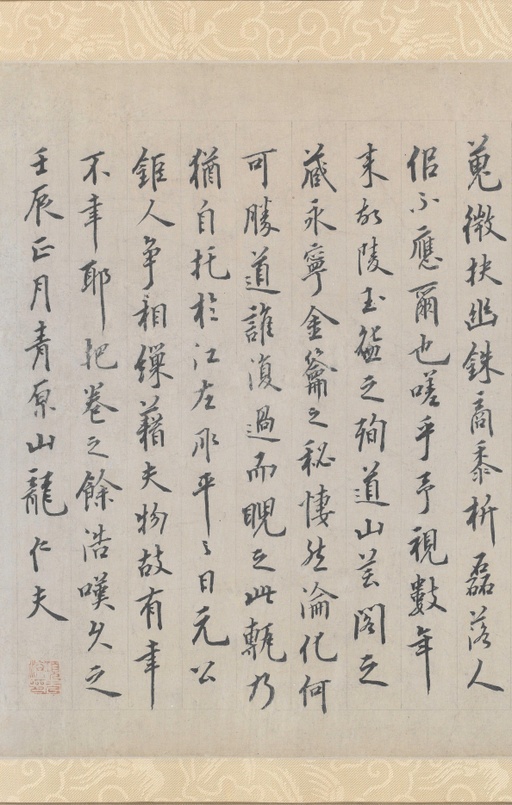 蒐微扶幽銖商黍析磊落人
侶不應爾也嗟乎予視數年
来故陵玉盌之殉道山芸閣之
藏永寧金籥之秘悽然淪化何
可勝道誰復過而睨之此軸乃
猶自托於江左以平=日元公
鉅人争相繅藉夫物故有幸
不幸耶把卷之餘浩嘆久之
壬辰正月青原山龍仁夫